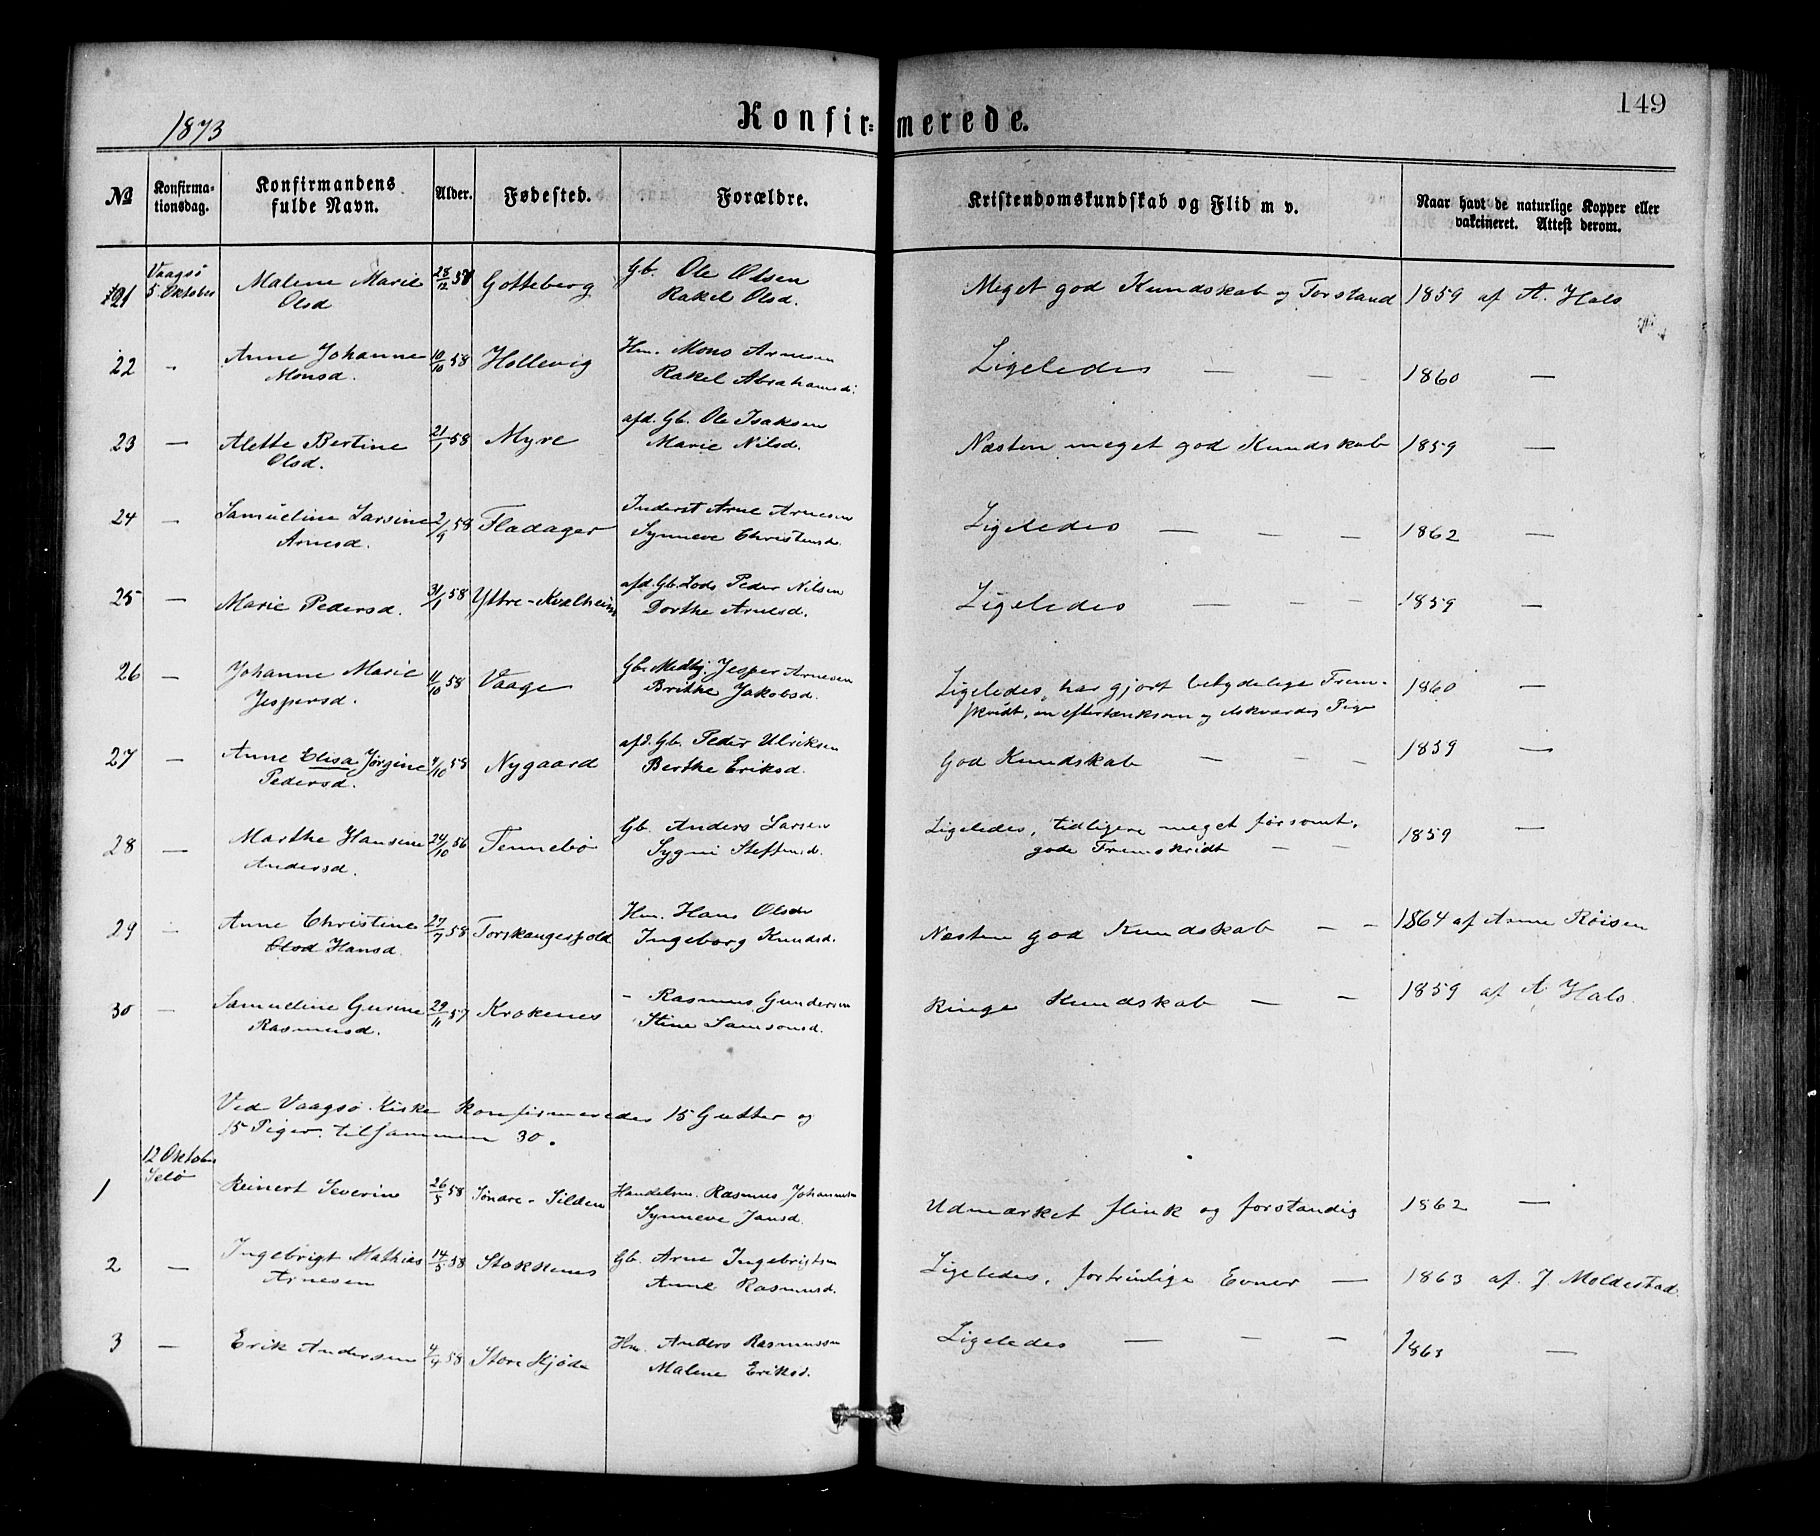 149
1873
Konfir=merede.
№ Konfirma-tionsdag. Konfirmandens fulde Navn. Alder. Fødested. Forældre. Kristendomskundskab og Flid m v. Naar havt de naturlige Kopper eller vakcineret. Attest derom.
Vaagsö
21 5. Oktober Malene Marie 28/12 57 Gotteberg Gb. Ole Olsen Meget god Kundskab og Forstand 1859 af A. Hals
Olsd Rakel Olsd.
22 - Anne Johanne 10/10 58 Hollevig Hm. Mons Arnesen Ligeledes — — 1860 —
Monsd. Rakel Abrahamsd.
23 — Alette Bertine 21/1 58 Myre afd. Gb. Ole Isaksen Næsten meget god Kundskab 1859 —
Olsd. Marie Nilsd.
24 — Samueline Larsine 2/9 58 Fladager Inderst Arne Arnesen Ligeledes — — — 1862 —
Arnesd. Synneve Christensd.
25 — Marie Pedersd. 31/1 58 Yttre-Kvalheim afd. Gb. Lods Peder Nilsen Ligeledes — — — 1859 —
Dorthe Arnesd.
26 — Johanne Marie 11/10 58 Vaage Gb. Medhj Jesper Arnesen Ligeledes, har gjort betydelige Frem- 1860 —
Jespersd. Brithe Jakobsd. skridt, en eftertænksom og elskværdig Pige
27 — Anne Elisa Jørgine 4/10 58 Nygaard afd. Gb. Peder Ulriksen God Kundskab — — — 1859 —
Pedersd. Berthe Eriksd.
28 — Marthe Hansine 24/10 56 Tennebö Gb. Anders Larsen Ligeledes, tidligere meget forsømt, 1859 —
Andersd. Sygni Steffensd. gode Fremskridt — —
29 — Anne Christine 27/7 58 Torskangerpold Hm. Hans Olsen Næsten god Kundskab — — 1864 af Anne Röisen
Olsd Hansd. Ingeborg Knudsd.
30 — Samueline Gurine 29/11 57 Krokenes - Rasmus Gundersen Ringe Kundskab — — 1859 af A Hals.
Rasmusd. Stine Samsonsd.
Ved Vaagsö Kirke konfirmeredes 15 Gutter og
15 Piger. tilsammen 30.
12 Oktober
Selö
1 Reinert Severin 26/5 58 Søndre-Silden Handelsm. Rasmus Johannesen Udmærket flink og forstandig 1862 —
Synneve Jansd.
2 — Ingebrigt Mathias 14/5 58 Stokkenes Gb. Arne Ingebrigtsen Ligeledes, fortrinlige Evner — 1863 af J Moldestad
Arnesen Anne Rasmusd.
3 — Erik Andersen 4/9 58 Store Skjöde Hm. Anders Rasmussen Ligeledes — — — 1863 —
Malene Eriksd.